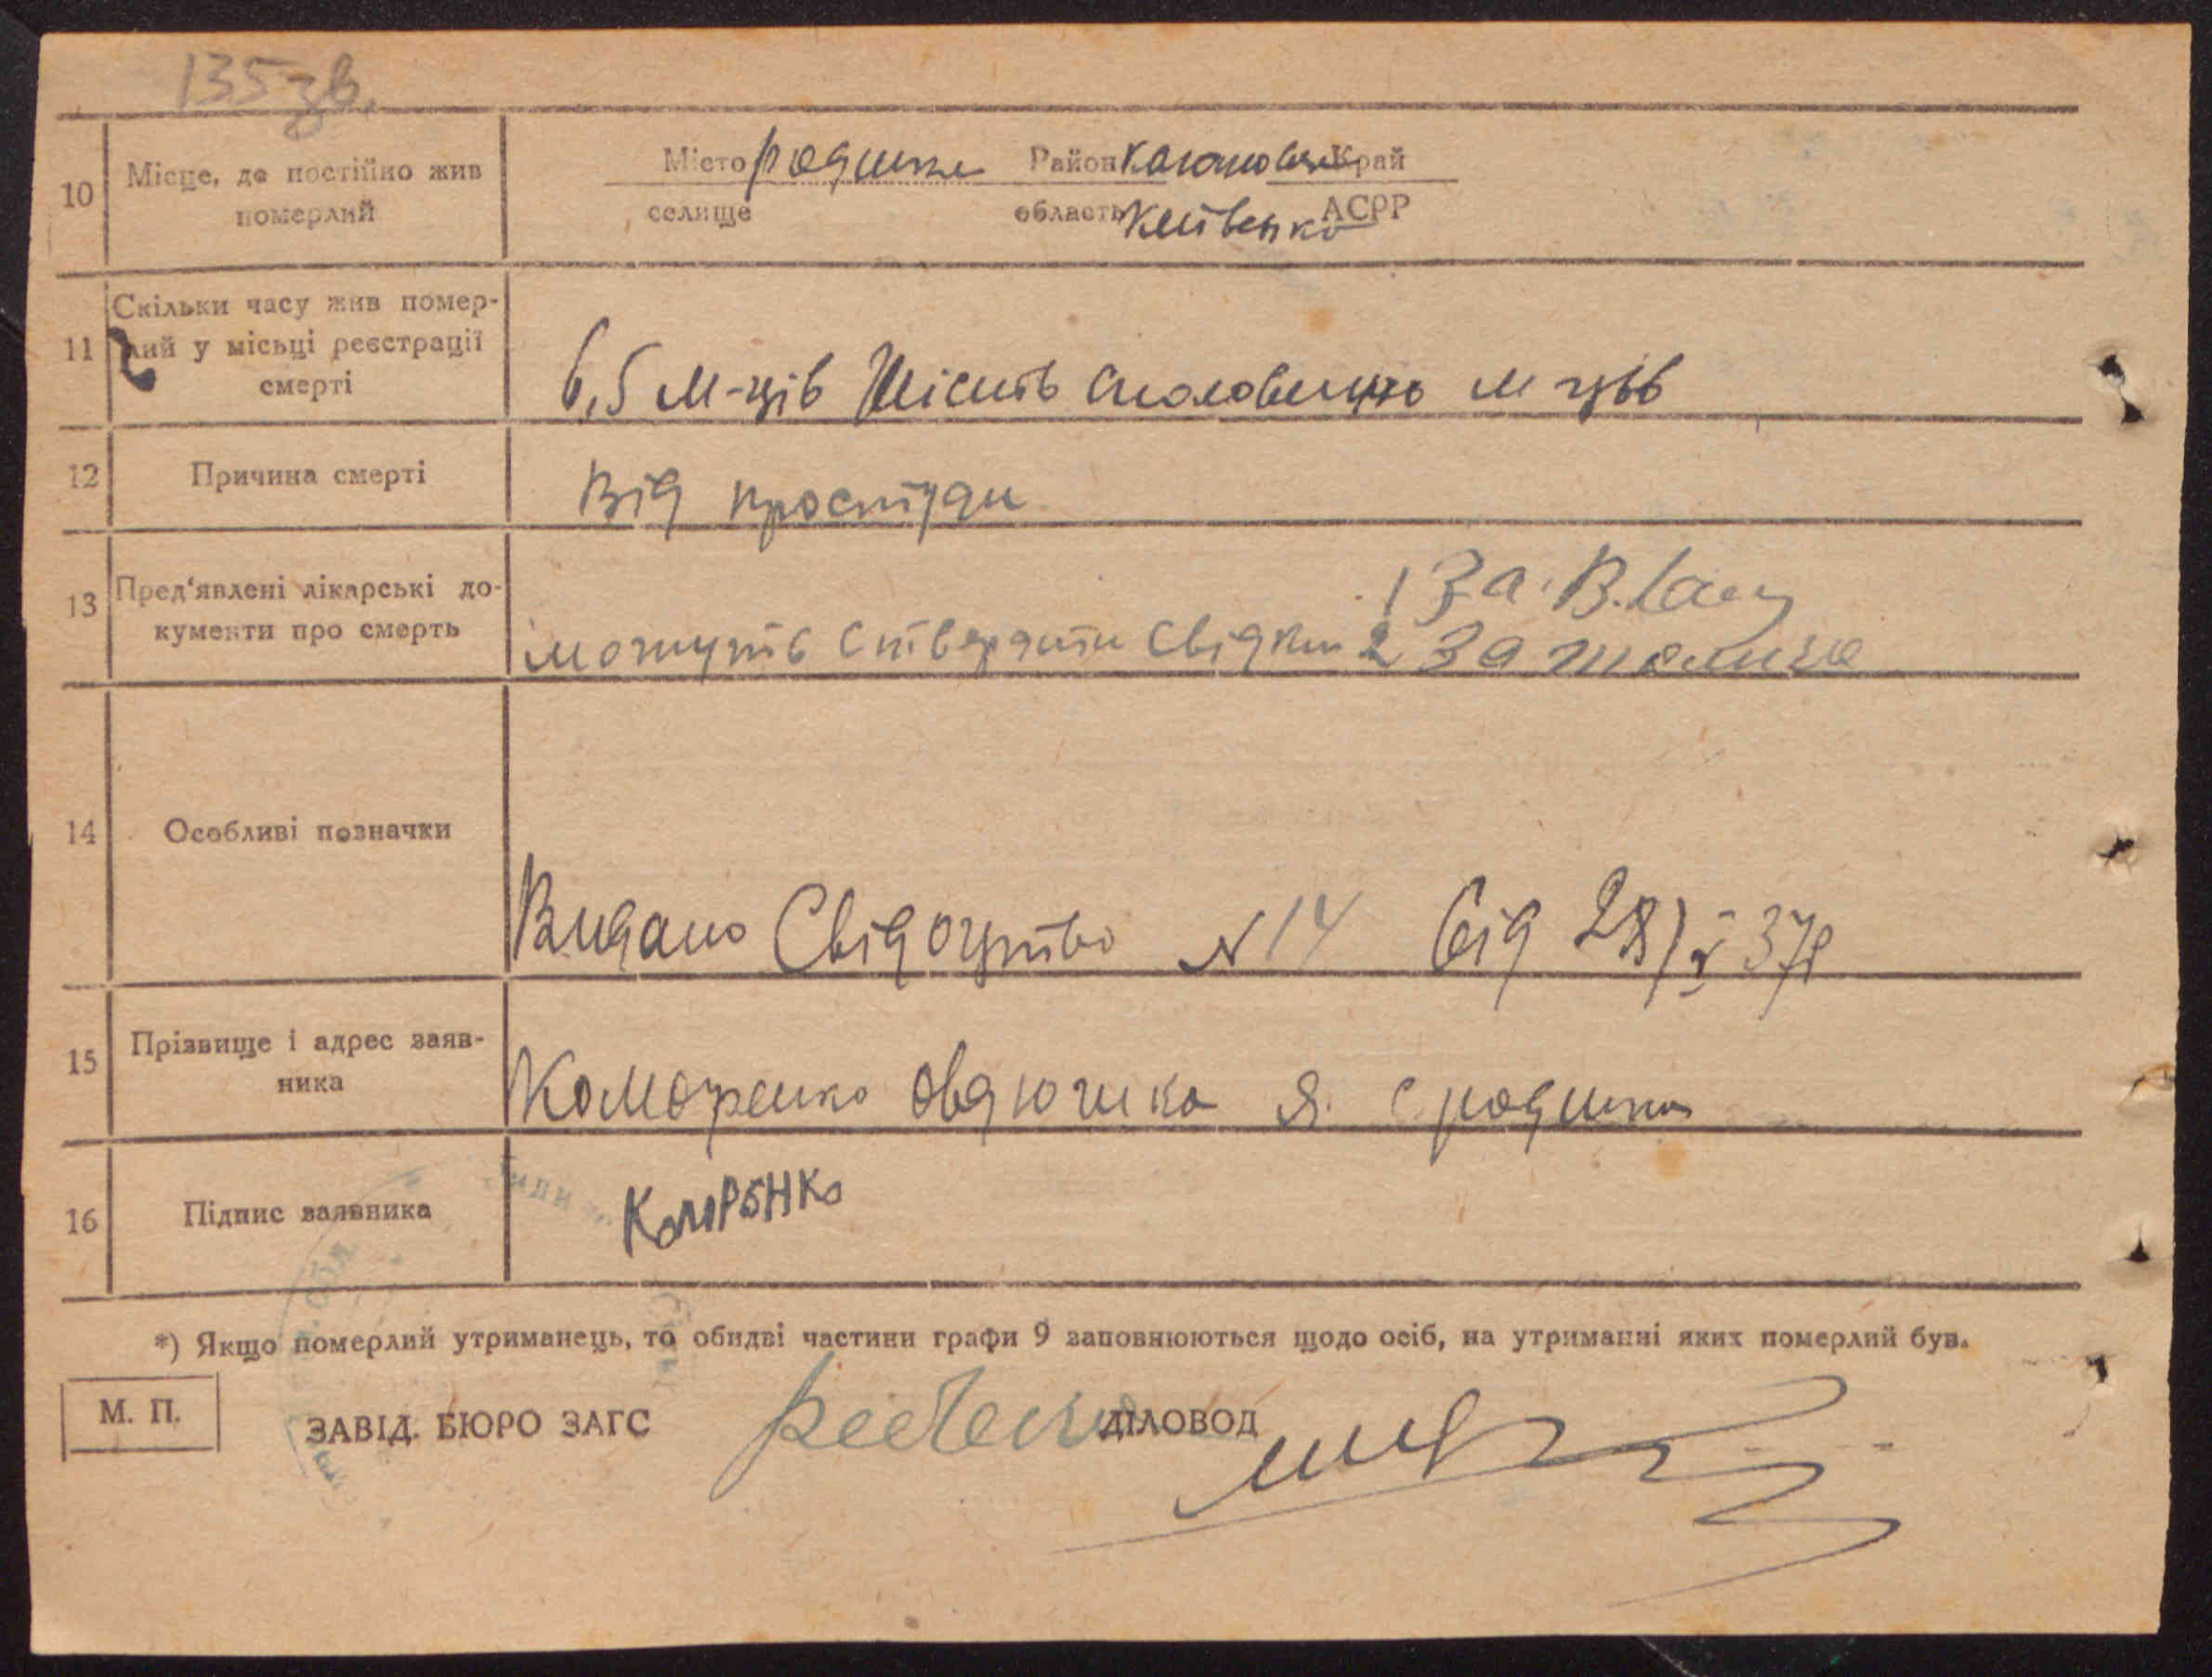 135 зв.
10 Місце, де постійно жив померлий
Місто Родинка Район Кагановичськ Край
селище область Київсько АСРР
11 Скільки часу жив помер-
лий у місьці реєстрації
смерті
6,5 м-ців Шість споловиную м ців
12 Причина смерті Від простуди
13 Пред'явлені лікарські до-
кументи про смерть
1 За
можуть ствердити свідки 2 За
14 Особливі позначки
Видано Свідоцтво N 14 від 28/V 37р
15 Прізвище і адрес заяв-
ника
Коморенко Овдюшка Я. с
16 Підпис заявника КомОРЕНКо
*) Якщо померлий утриманець, то обидві частини графи 9 заповнюються щодо осіб, на утриманні яких померлий був.
М. П.
ЗАВІД. БЮРО ЗАГС ДІЛОВОД